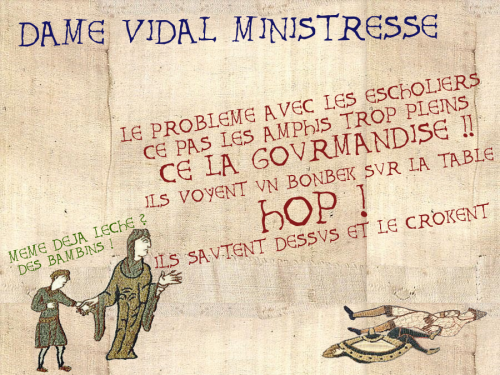 DAME VIDAL MINISTRESSE
LE PROBLEME AVEC LES ESCHOLIERS
CE PAS LES AMPHIS TROP PLEINS
CE LA GOVRMANDISE !!
ILS VOYENT VN BONBEK SVR LA TABLE
HOP !
ILS SAVTENT DESSVS ET LE CROKENT
MEME DEJA LECHE ?
DES BAMBINS !